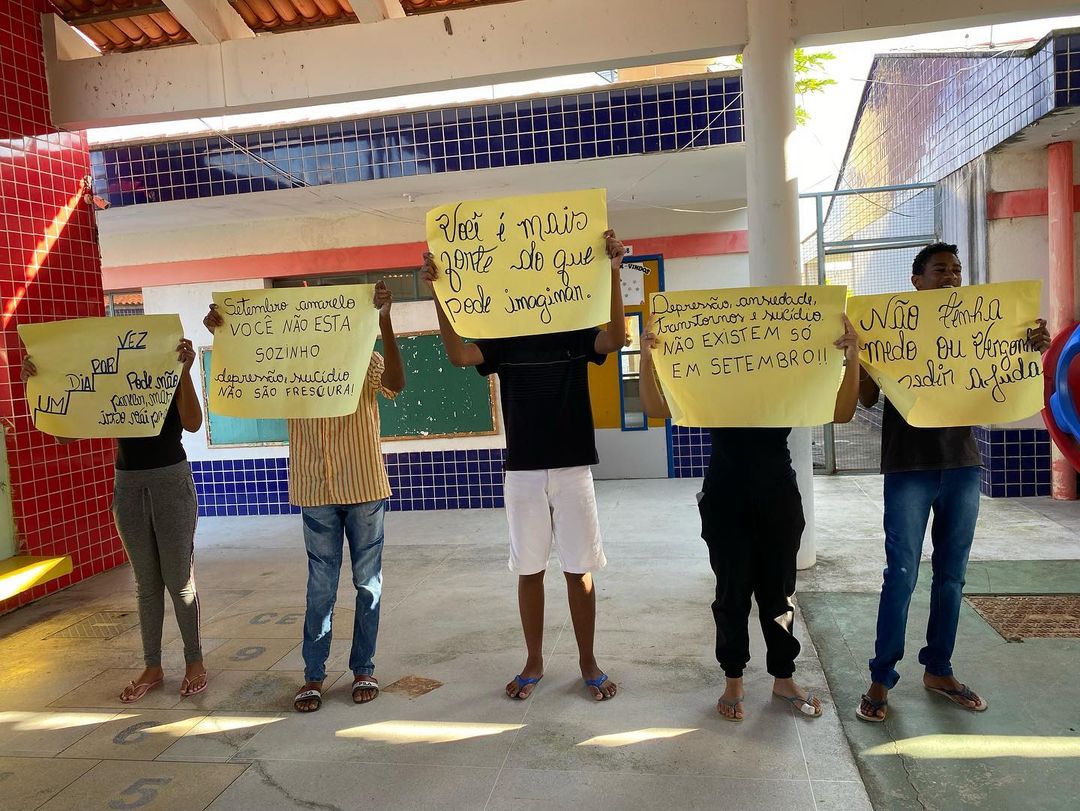 UM DIA POR VEZ
Pode não
parecer, mas
isso vai
Setembro amarelo
VOCÊ NÃO ESTA
SOZINHO
depressão, suicídio
NÃO SÃO FRESCURA!
Você é mais
forte do que
pode imaginar.
Depressão, ansiedade,
Transtornos e suicídio
NÃO EXISTEM SÓ
EM SETEMBRO!!
Não tenha
medo ou vergonha
pedir ajuda
FILA
CE
9
6
5